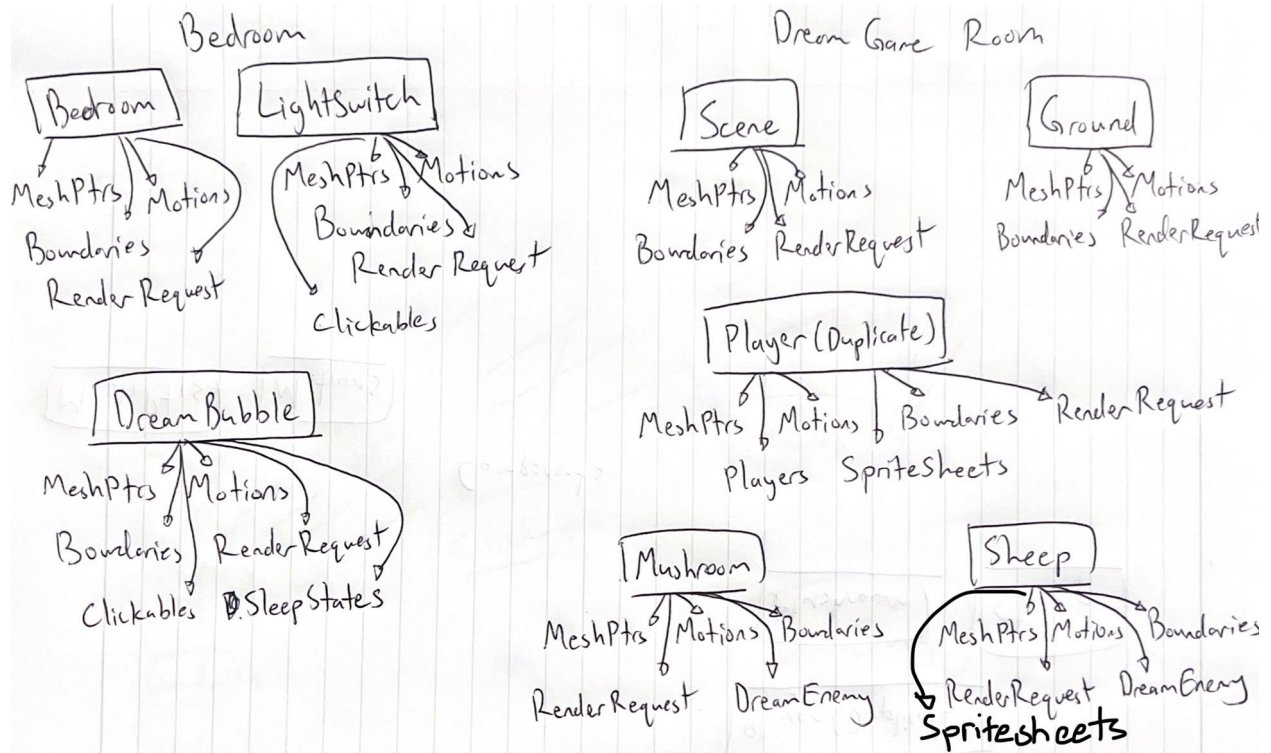 Bedroom
Bedroom
LightSwitch
MeshPtrs
Motions
Boundaries
RenderRequest
MeshPtrs
Motions
Boundaries
Render Request
Clickables
DreamBubble
MeshPtrs
Motions
Boundaries
RenderRequest
Clickables
SleepStates
Dream Game Room
Scene
Ground
MeshPtrs
Motions
Boundaries
RenderRequest
MeshPtrs
Motions
Boundaries
RenderRequest
Player (Duplicate)
MeshPtrs
Motions
Boundaries
RenderRequest
Players
SpriteSheets
Mushroom
Sheep
MeshPtrs
Motions
Boundaries
RenderRequest
DreamEnemy
MeshPtrs
Motions
Boundaries
RenderRequest
DreamEnemy
Spritesheets